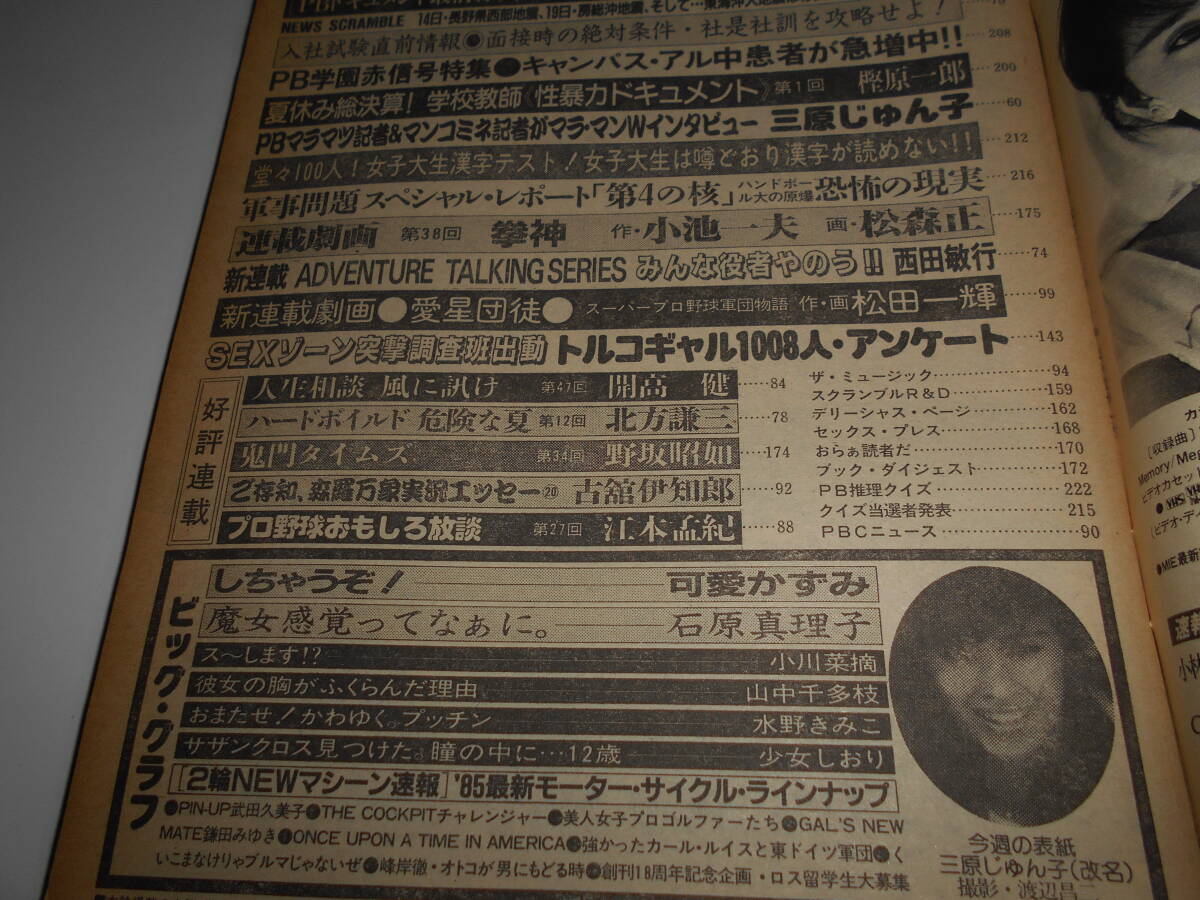 NEWS SCRAMBLE 14日・長野県西部地震、19日・房総沖地震、そして…東海沖大地震は
入社試験直前情報●面接時の絶対条件・社是社訓を攻略せよ！
PB学園赤信号特集●キャンパス・アル中患者が急増中!! 208
夏休み総決算！学校教師《性暴力ドキュメント》第1回 樫原一郎 200
PBマラマツ記者&マンコミネ記者がマラ・マンWインタビュー 三原じゅん子 60
堂々100人！女子大生漢字テスト！女子大生は噂どおり漢字が読めない!! 212
軍事問題スペシャル・レポート「第4の核」ハンドボール大の原爆恐怖の現実 216
連載劇画 第38回 拳神 作・小池一夫 画・松森正 175
新連載 ADVENTURE TALKING SERIES みんな役者やのう!! 西田敏行 74
新連載劇画●愛星団徒● スーパープロ野球軍団物語 作・画 松田一輝 99
SEXゾーン突撃調査班出動 トルコギャル1008人・アンケート 143
好評連載
人生相談 風に訊け 第47回 開高健 84
ハードボイルド 危険な夏 第12回 北方謙三 78
鬼門タイムズ 第34回 野坂昭如 174
ご存知、森羅万象実況エッセー⑳ 古舘伊知郎 92
プロ野球おもしろ放談 第27回 江本孟紀 88
ザ・ミュージック 94
スクランブルR&D 159
デリーシャス・ページ 162
セックス・プレス 168
おらぁ読者だ 170
ブック・ダイジェスト 172
PB推理クイズ 222
クイズ当選者発表 215
PBCニュース 90
ビッグ・グラフ
しちゃうぞ！ 可愛かずみ
魔女感覚ってなぁに。 石原真理子
ス〜します!? 小川菜摘
彼女の胸がふくらんだ理由 山中千多枝
おまたせ！かわゆく。プッチン 水野きみこ
サザンクロス見つけた。瞳の中に…12歳 少女しおり
[2輪NEWマシーン速報] '85最新モーター・サイクル・ラインナップ
●PIN-UP武田久美子●THE COCKPITチャレンジャー●美人女子プロゴルファーたち●GAL'S NEW
MATE鎌田みゆき●ONCE UPON A TIME IN AMERICA●強かったカール・ルイスと東ドイツ軍団●く
いこまなけりゃブルマじゃないぜ●峰岸徹・オトコが男にもどる時●創刊18周年記念企画・ロス留学生大募集
今週の表紙
三原じゅん子(改名)
撮影・渡辺昌
[収録曲]
Memory/Meg
ビデオカセット
VHS
[ビデオ・デ
●MIE最新
速報